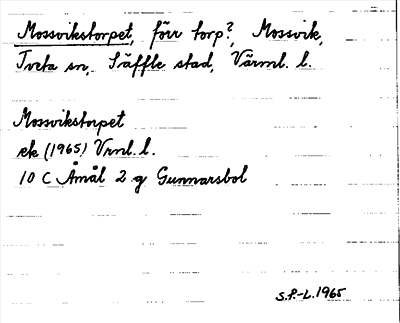 Mossvikstorpet, förr torp?, Mossvik,
Tveta sn, Säffle stad, Värml. l.
Mossvikstorpet
ek (1965) Vrml. l.
10 C Åmål 2 g Gunnarsbol
S.P.-L. 1965